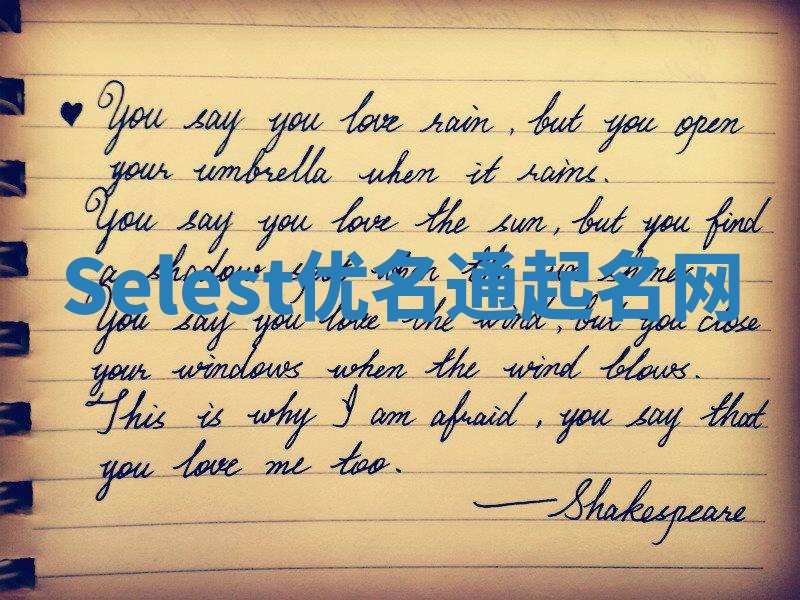 You say you love rain, but you open
your umbrella when it rains.
You say you love the sun, but you find
a shadow spot when the sun shines.
Selest优名通起名网
You say you love the wind, but you close
your windows when the wind blows.
This is why I am afraid, you say that
you love me too.
—Shakespeare